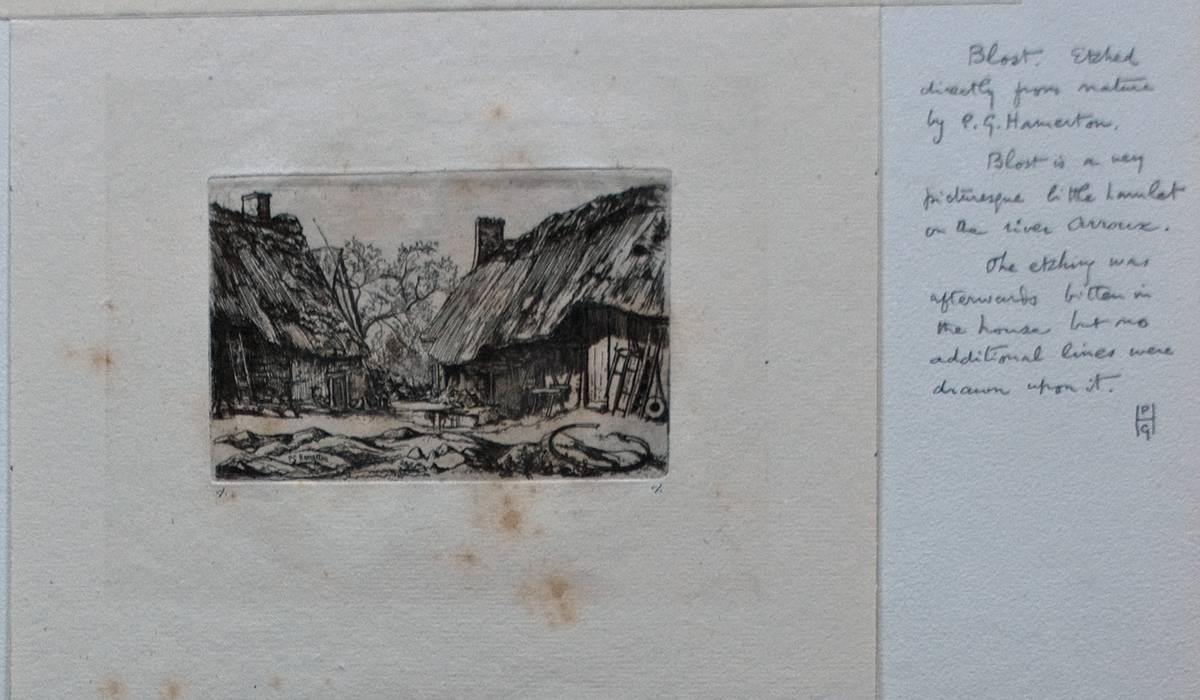 Blost. Etched
directly from nature
by P. G. Hamerton.
Blost is a very
picturesque little hamlet
on the river Arroux.
The etching was
afterwards bitten in
the house but no
additional lines were
drawn upon it.
P
G
P G Hamerton